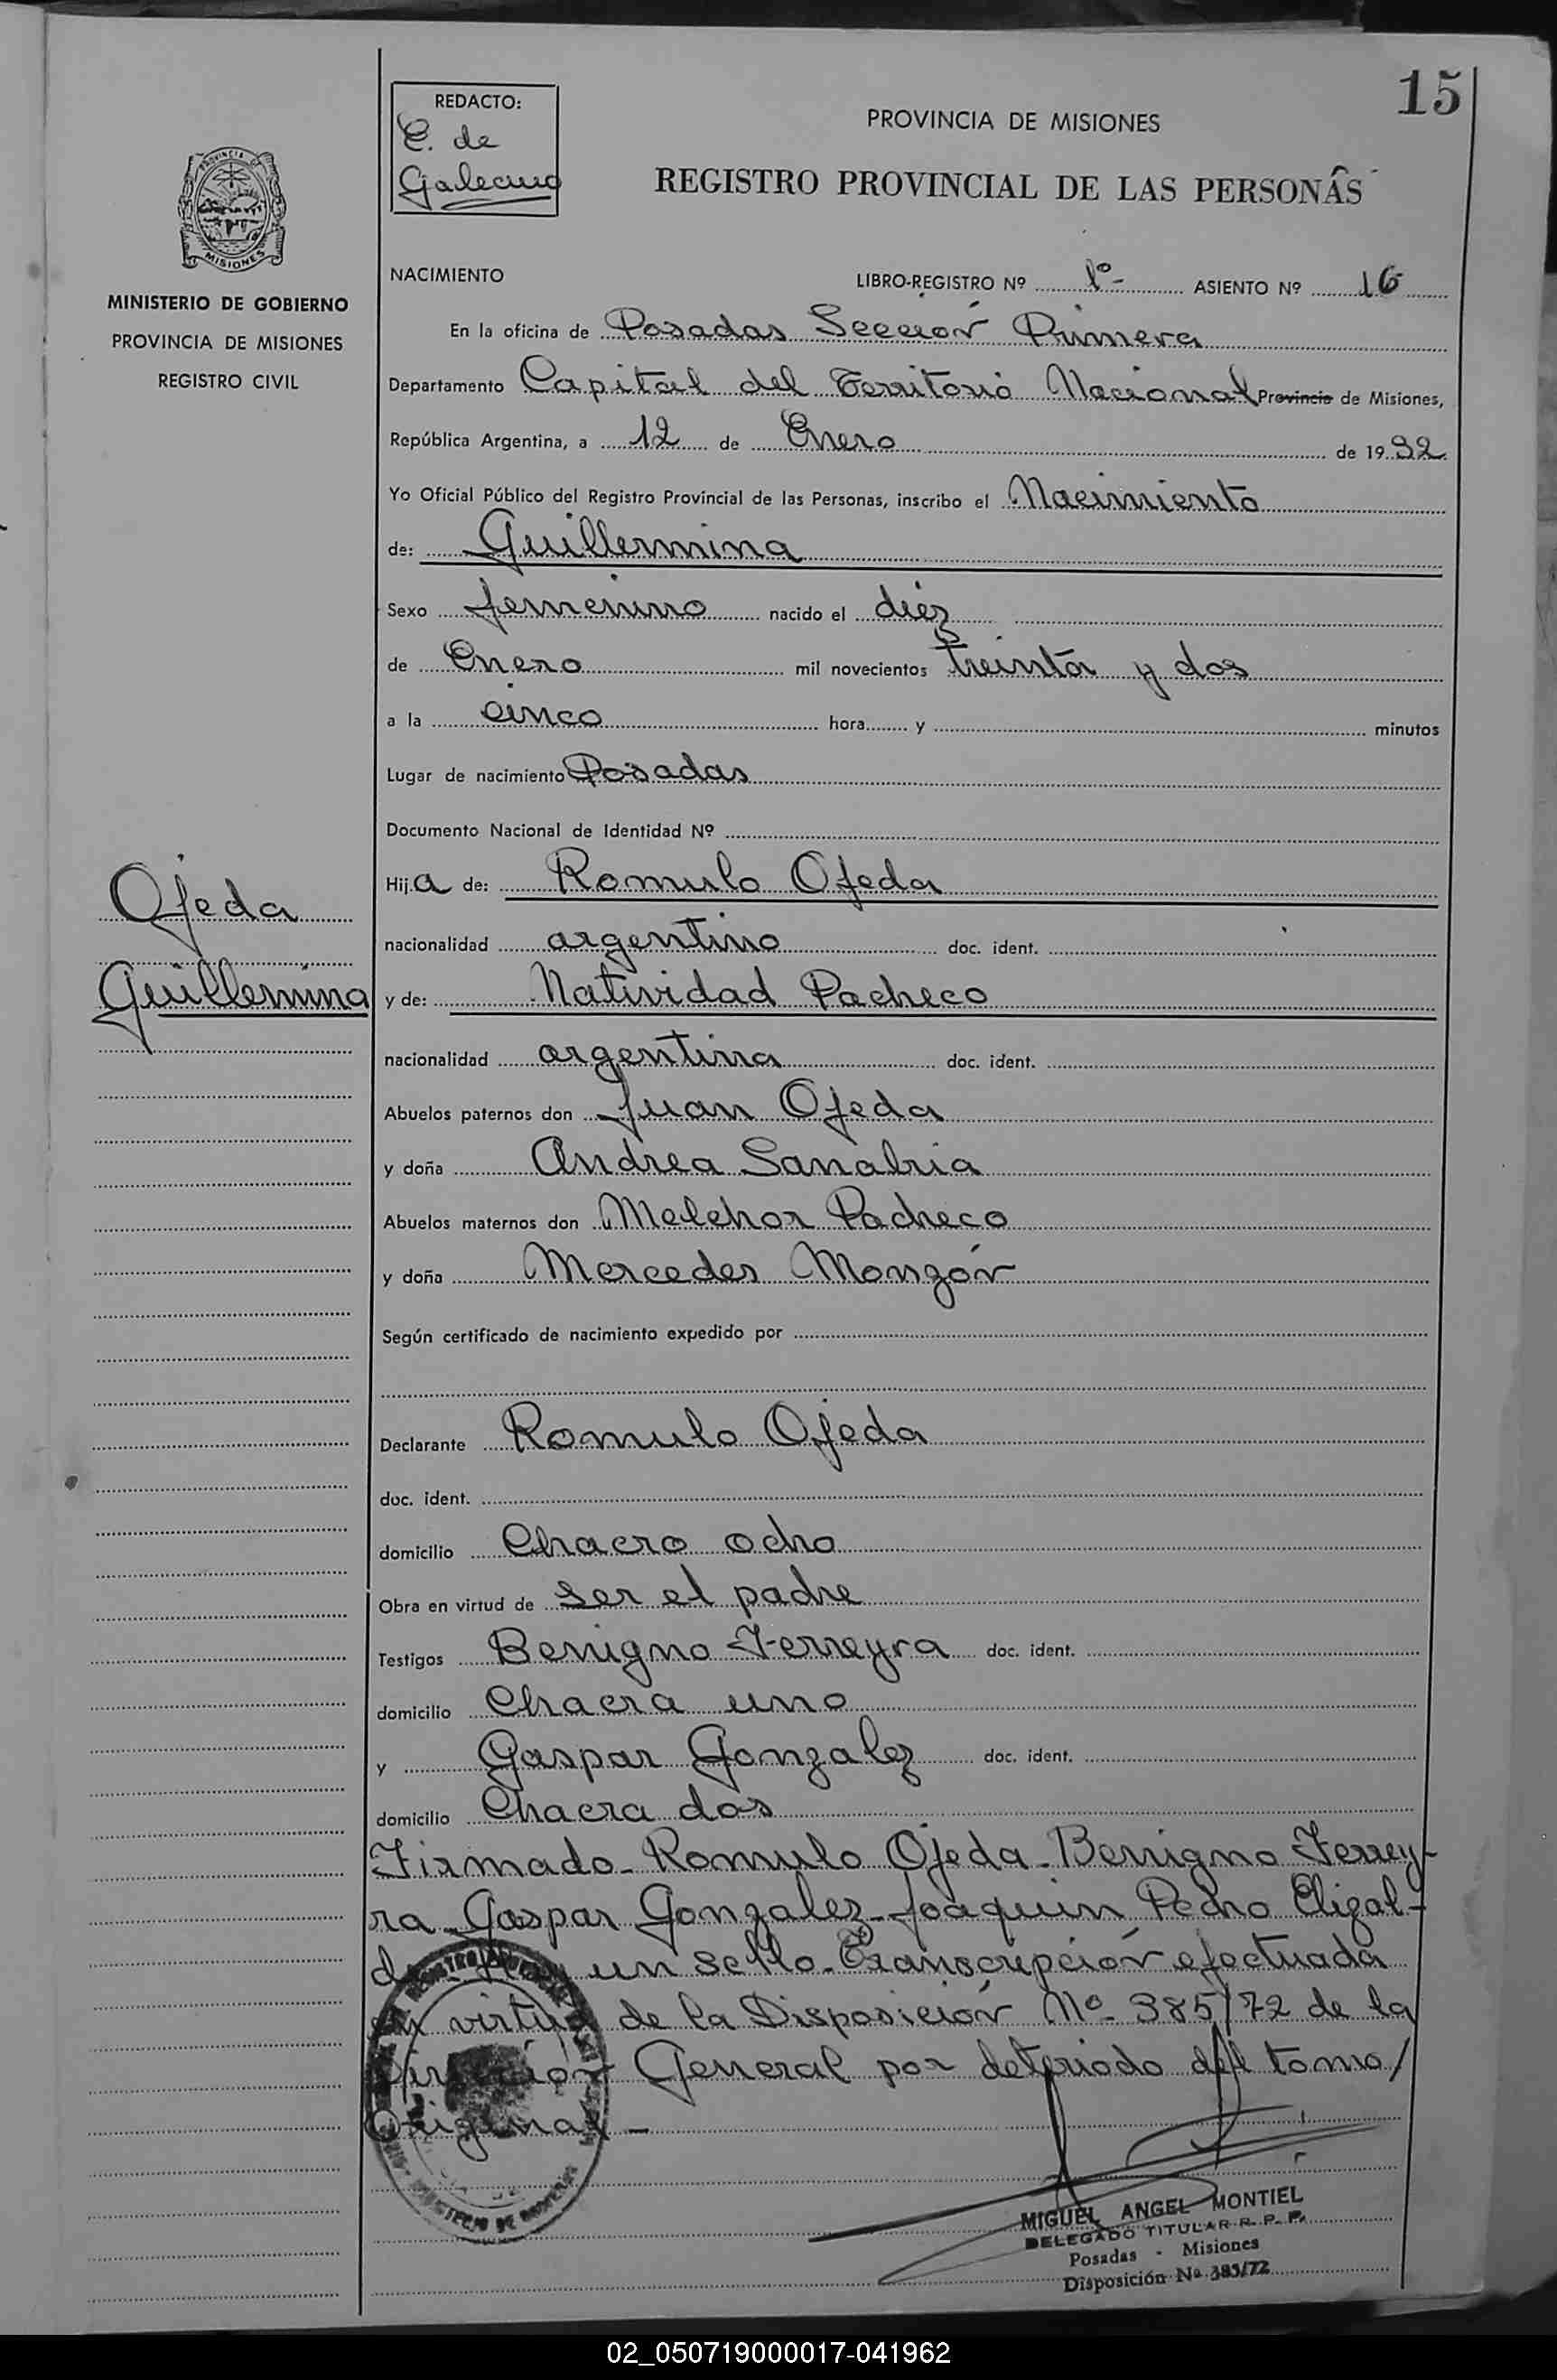 15
REDACTO:
E. de
Galeano
PROVINCIA DE MISIONES
REGISTRO PROVINCIAL DE LAS PERSONAS
PROVINCIA DE
MISIONES
MINISTERIO DE GOBIERNO
PROVINCIA DE MISIONES
REGISTRO CIVIL
NACIMIENTO
LIBRO-REGISTRO Nº 1º- ASIENTO Nº 16
En la oficina de Posadas Sección Primera
Departamento Capital del Territorio Nacional Provincia de Misiones,
República Argentina, a 12 de Enero de 1932
Yo Oficial Público del Registro Provincial de las Personas, inscribo el Nacimiento
de: Guillermina
Sexo femenino nacido el diez
de Enero mil novecientos treinta y dos
a la cinco hora y minutos
Lugar de nacimiento Posadas
Documento Nacional de Identidad Nº
Hija de: Romulo Ojeda
nacionalidad argentino doc. ident.
y de: Natividad Pacheco
nacionalidad argentina doc. ident.
Abuelos paternos don Juan Ojeda
y doña Andrea Sanabria
Abuelos maternos don Melchor Pacheco
y doña Mercedes Monzón
Según certificado de nacimiento expedido por
Declarante Romulo Ojeda
doc. ident.
domicilio Chacra ocho
Obra en virtud de ser el padre
Testigos Benigno Ferreyra doc. ident.
domicilio Chacra uno
y Gaspar Gonzalez doc. ident.
domicilio Chacra dos
Firmado- Romulo Ojeda- Benigno Ferrey-
ra- Gaspar Gonzalez- Joaquin Pedro Elizal-
un sello- Transcripción efectuada
en virtud de la Disposición Nº 385/72 de la
Dirección General por deteriodo del tomo/
Original-
Ojeda
Guillermina
MIGUEL ANGEL MONTIEL
DELEGADO TITULAR R. P. P.
Posadas - Misiones
Disposición Nº 385/72
02_050719000017-041962